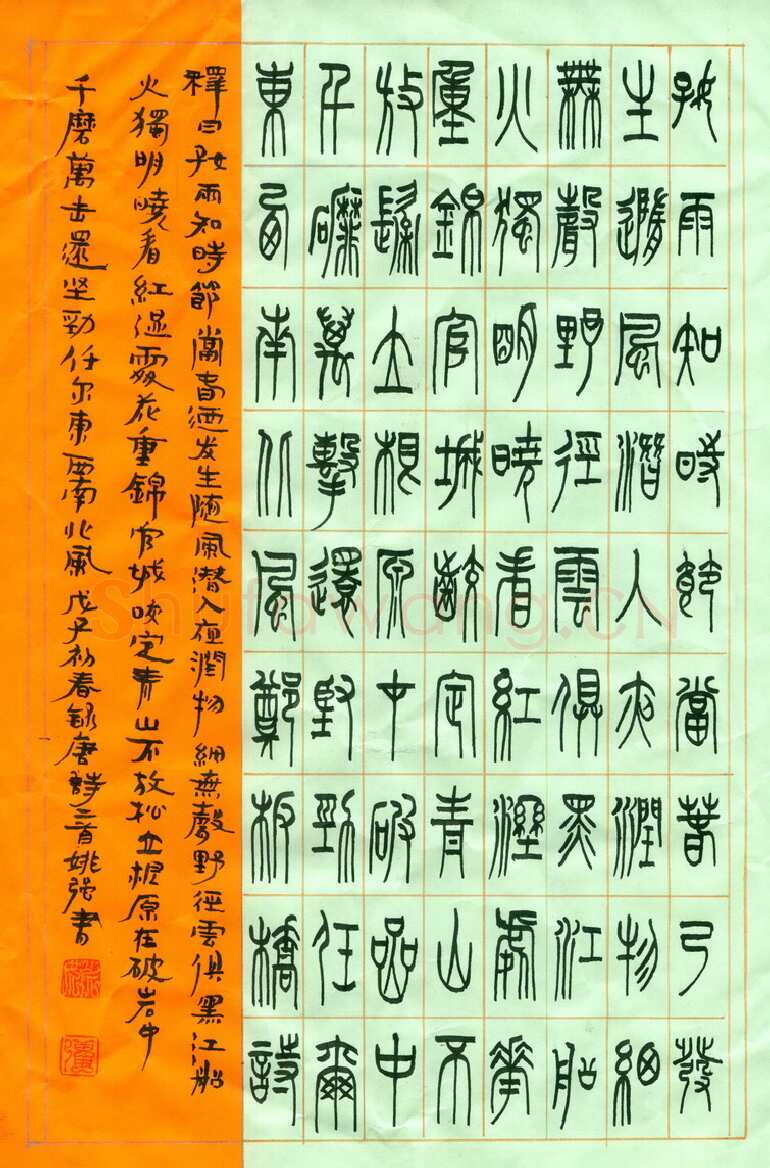 好雨知時節當春乃發
生隨風潛入夜潤物細
無聲野徑雲俱黑江船
火獨明曉看紅濕處花
重錦官城齩定青山不
放鬆立根原在破嵒中
千磨萬擊還堅勁任爾
東西南北風鄭板橋詩
釋曰好雨知時節當春迺发生随風潜入夜潤物細無聲野徑雲俱黑江船
火獨明曉看紅濕處花重錦官城咬定青山不放松立根原在破岩中
千磨萬击還坚勁任尔東西南北風戊子初春録唐詩二首姚强書
Shufawang.CN